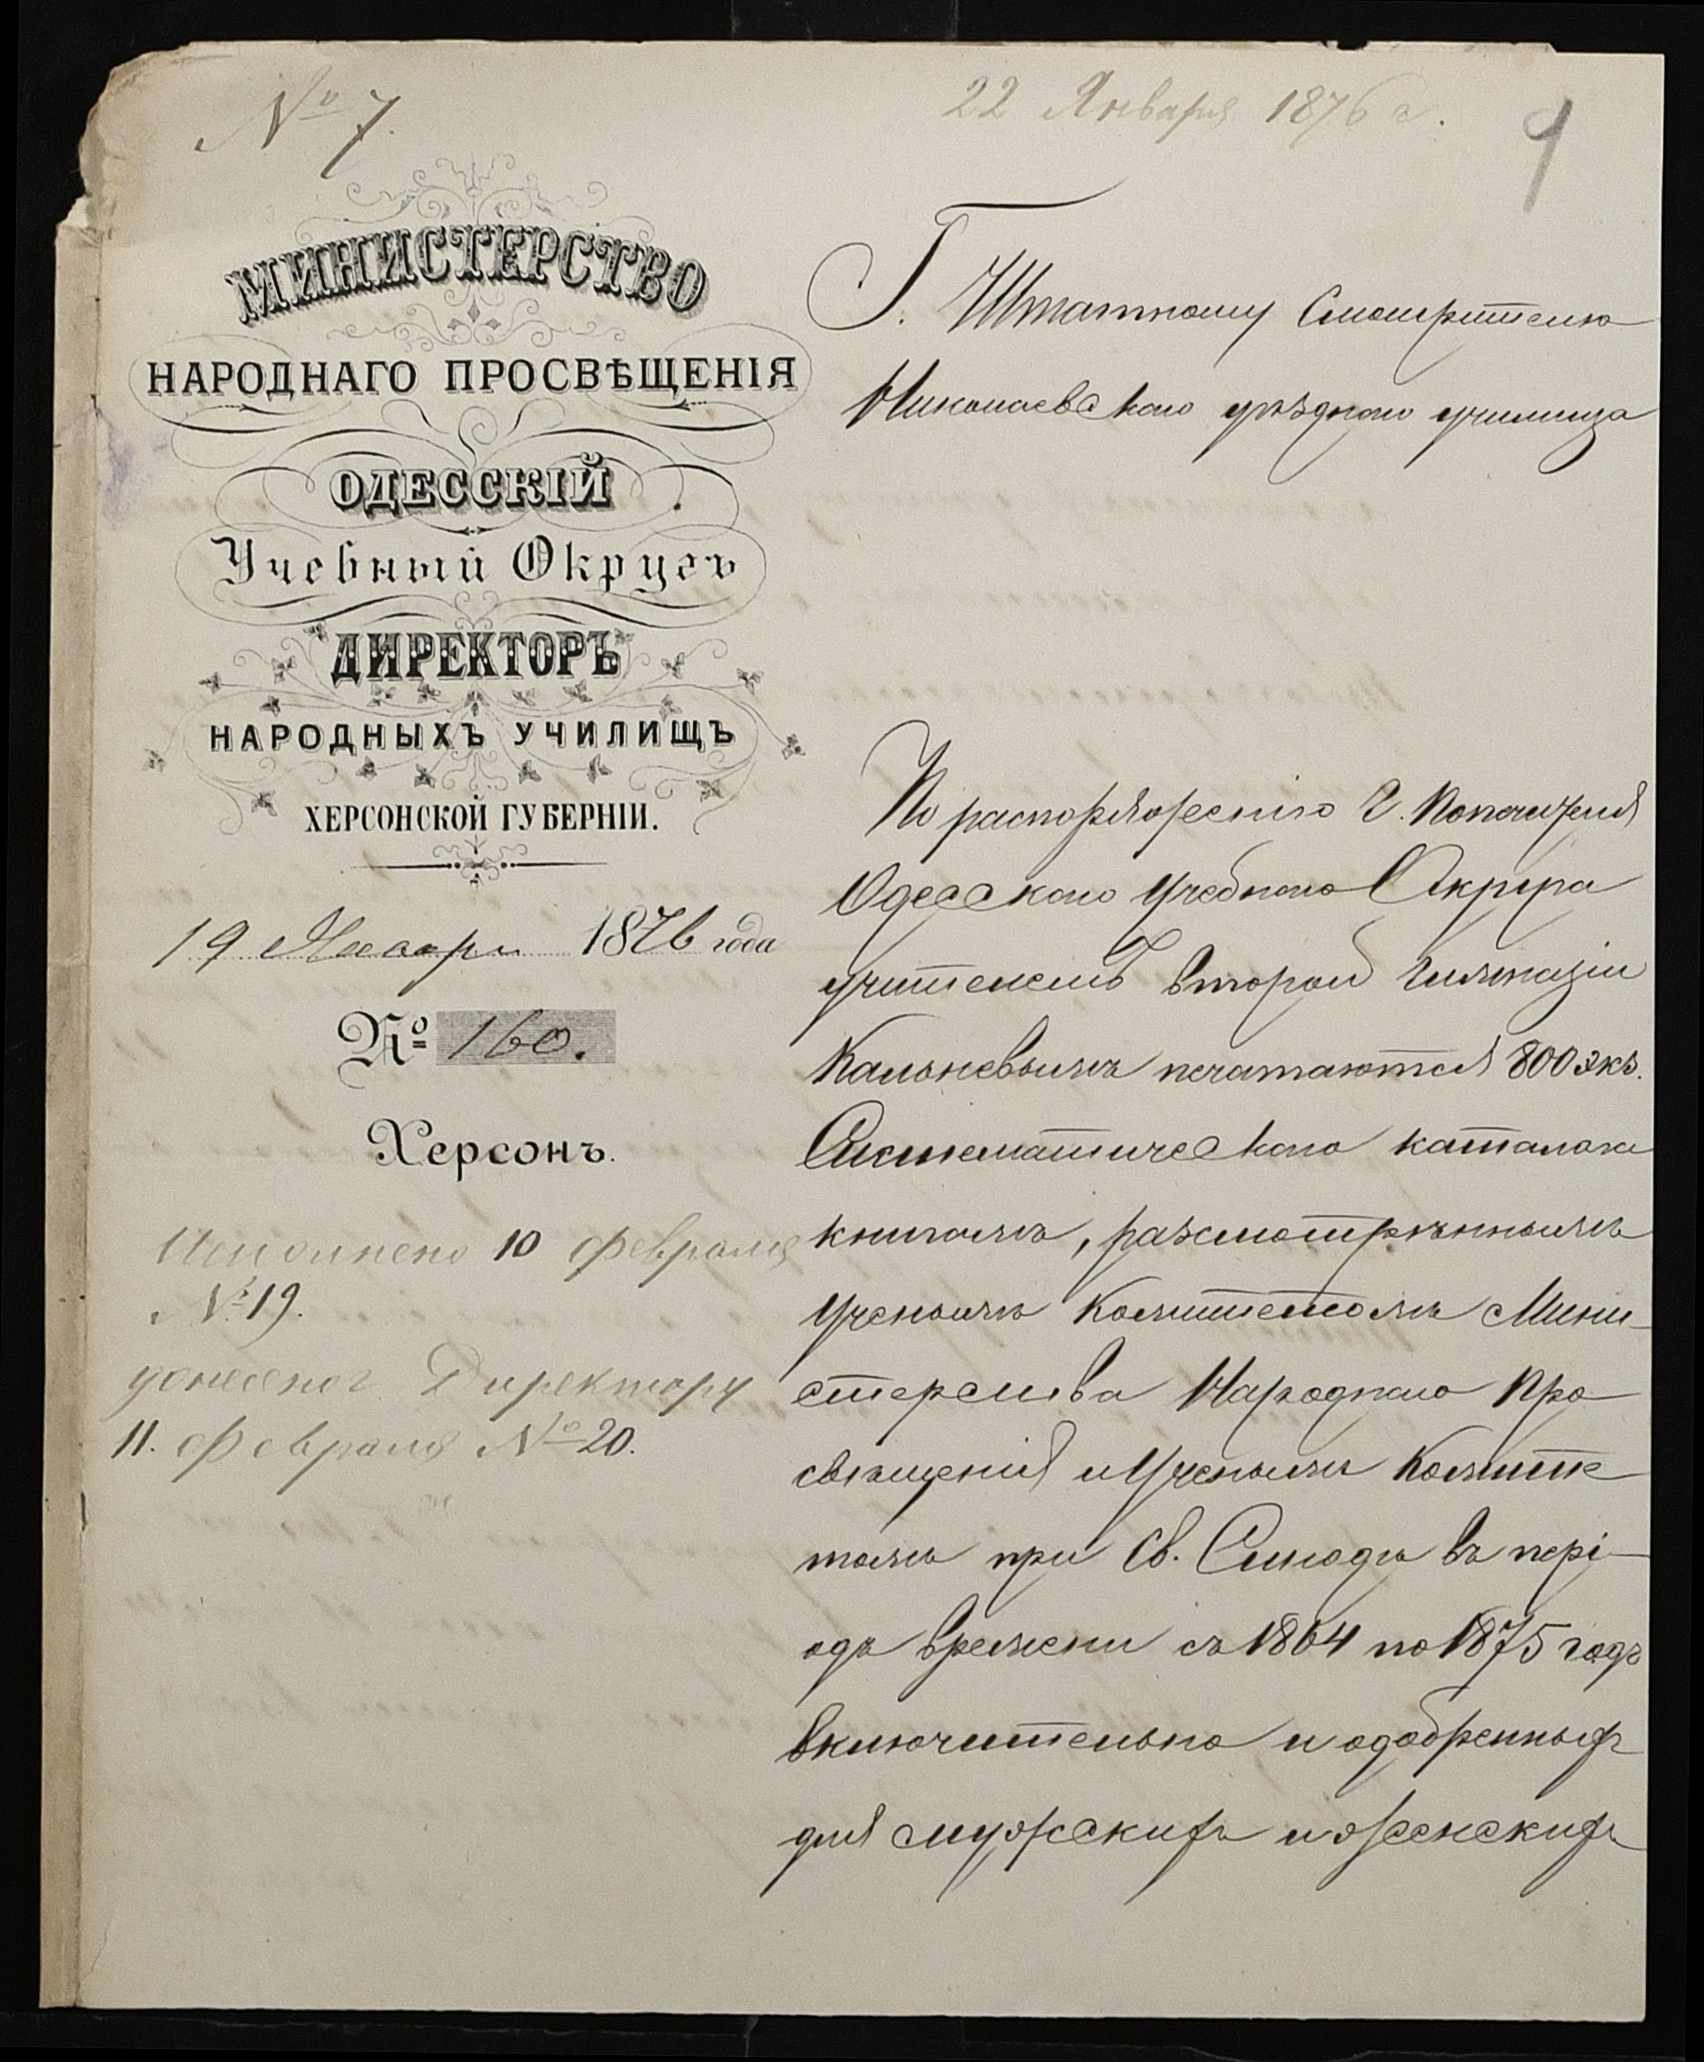 № 7.
22 Января 1876 г.
9
МИНИСТЕРСТВО
НАРОДНАГО ПРОСВѢЩЕНІЯ
ОДЕССКІЙ
Учебный Округъ
ДИРЕКТОРЪ
НАРОДНЫХЪ УЧИЛИЩЪ
ХЕРСОНСКОЙ ГУБЕРНІИ.
19 Января 1876 года
№ 160.
Херсонъ.
Исполнено 10 февраля
№ 19.
донесено Директору
11. февраля № 20.
Г. Штатному Смотрителю
Николаевскаго уѣзднаго училища
По распоряженію Г. Попечителя
Одесскаго Учебнаго Округа
учителемъ второй Гимназіи
печатаются 800 экз.
Систематическаго каталога
книгамъ, разсмотрѣннымъ
Ученымъ Комитетомъ Мини-
стерства Народнаго Про
свѣщенія и Ученымъ Комите
томъ при Св. Синодѣ въ пері-
одъ времени съ 1864 по 1875 годъ
включительно и одобренныхъ
для мужскихъ и женскихъ